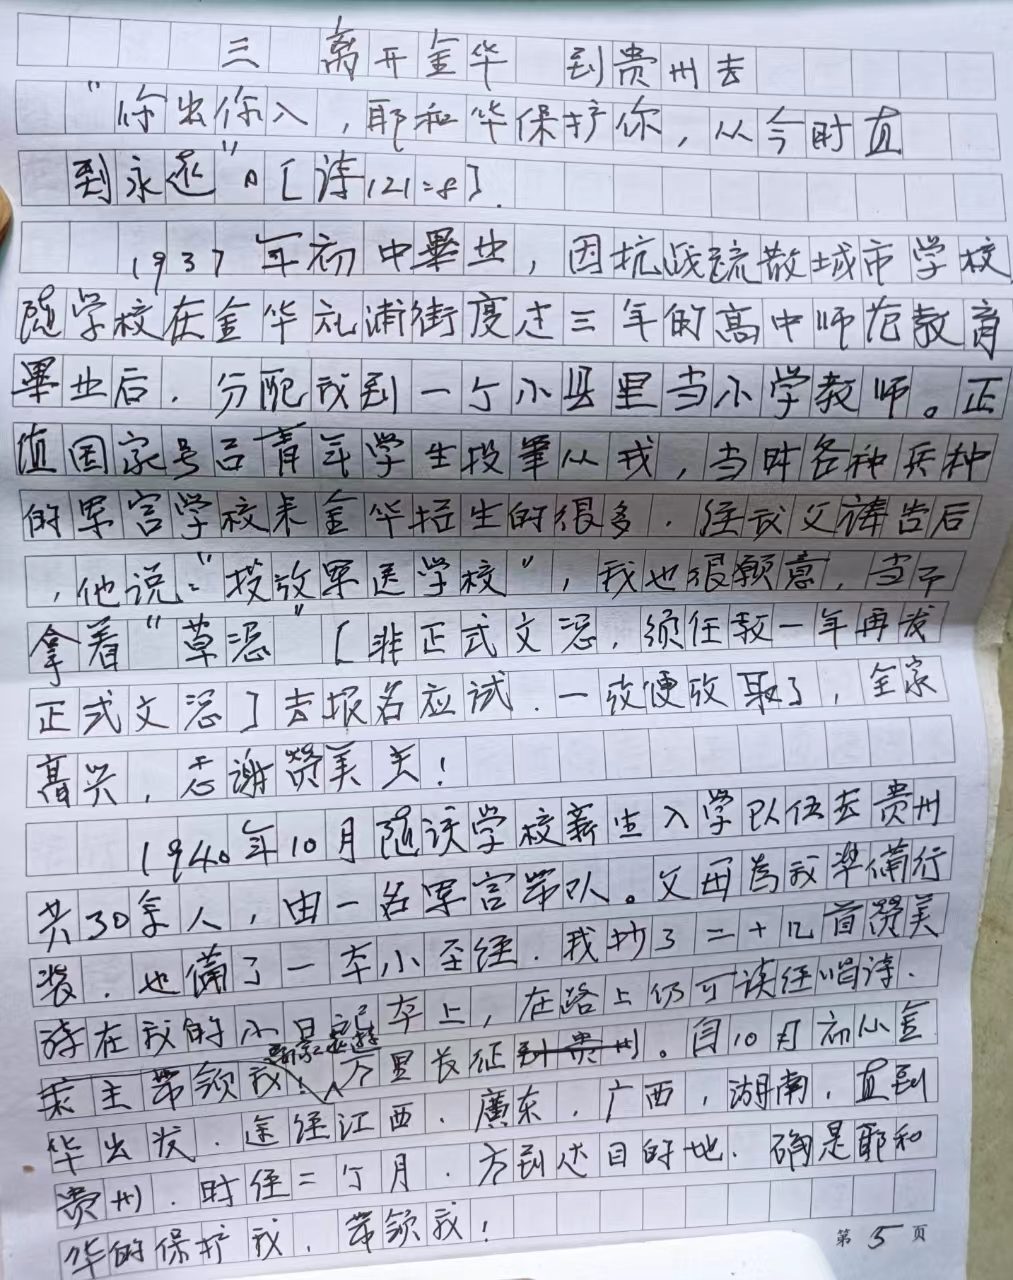 三 离开金华 到贵州去
“你出你入，耶和华保护你，从今时直
到永远”。[诗121:8].
1937年初中畢业，因抗战疏散城市学校
随学校在金华礼浦街度过三年的高中师范教育
畢业后．分配我到一个小县里当小学教师。正
值国家号召青年学生投筆从戎，当时各种兵种
的军官学校来金华招生的很多．经我父祷告后
，他说：“投放军医学校”，我也很願意．当即
拿着“草凭”[非正式文凭，须任教一年再发
正式文凭]去报名应试．一攷便攷取了，全家
高兴，感谢赞美主！
1940年10月随该学校新生入学队伍去贵州
共30余人，由一名军官带队。父母為我準備行
装．也備了一本小圣经．我抄了二十几首赞美
诗在我的小日记本上，在路上仍可读经唱诗．
求主带领我！万里长征。自10月初从金
华出发．途经江西．廣东．广西，湖南．直到
贵州．时经二个月．方到达目的地．确是耶和
华的保护我．带领我！
第 5 页